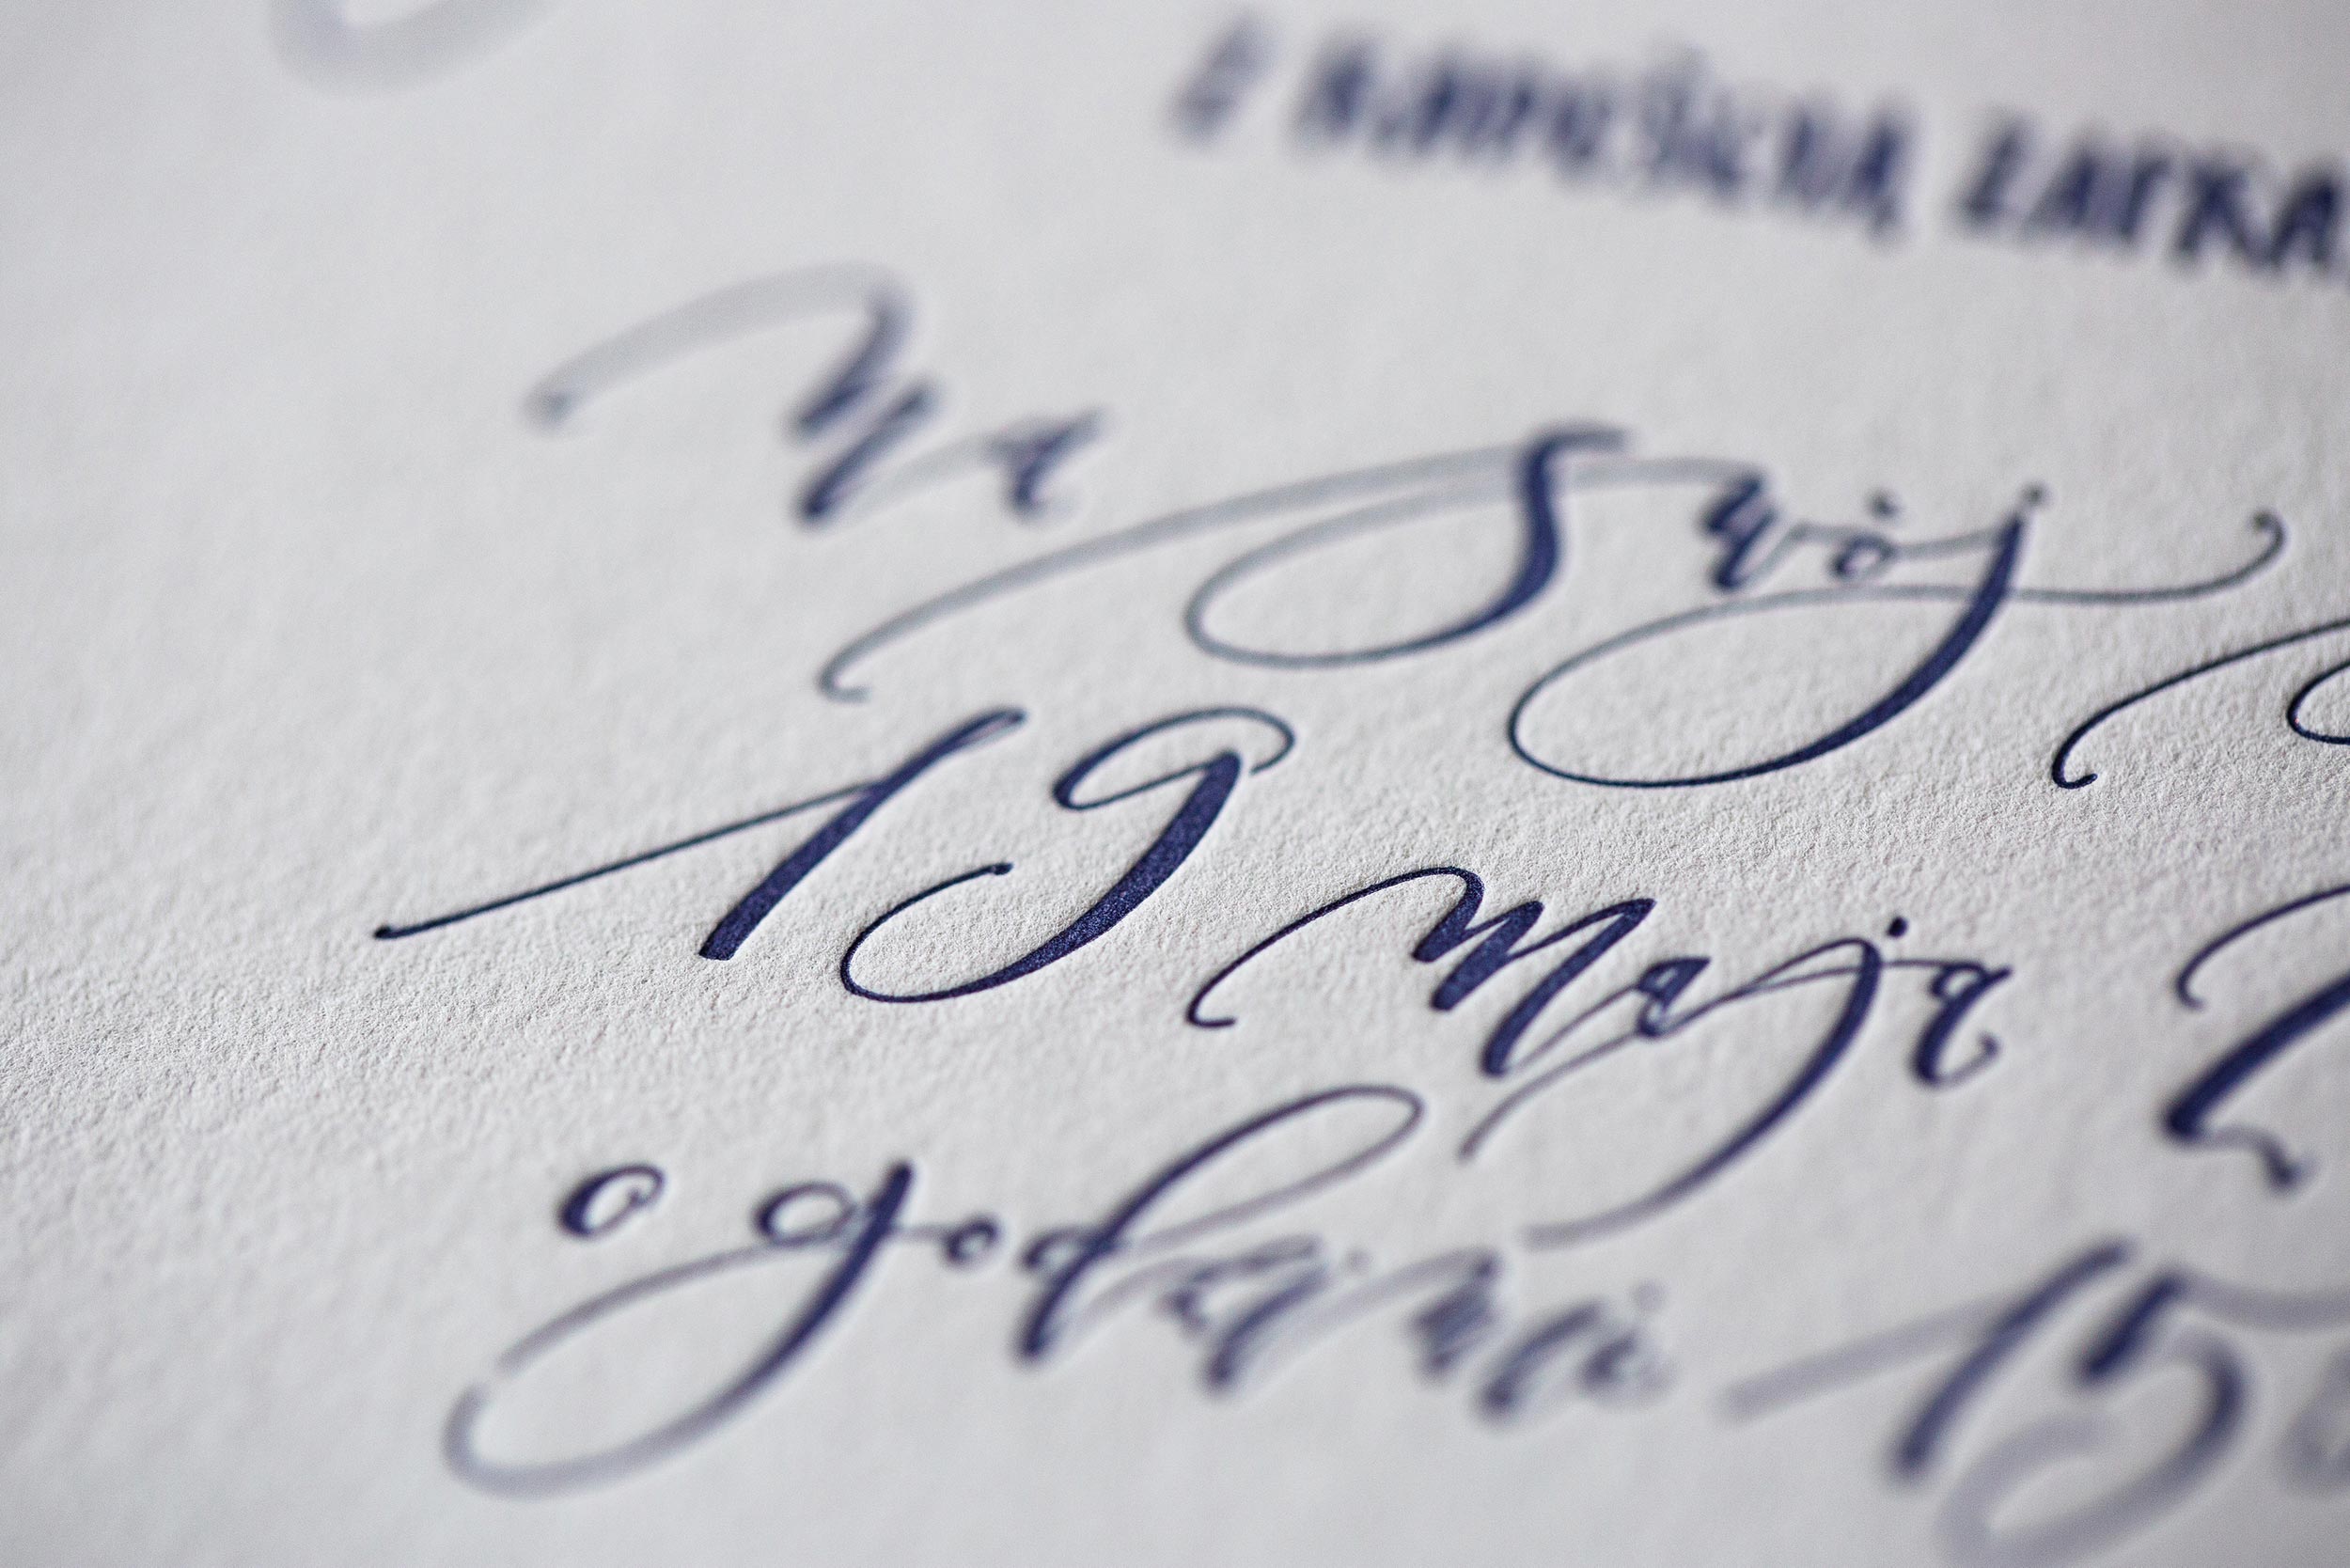 Na Swój
19 Maja
o godzinie 15